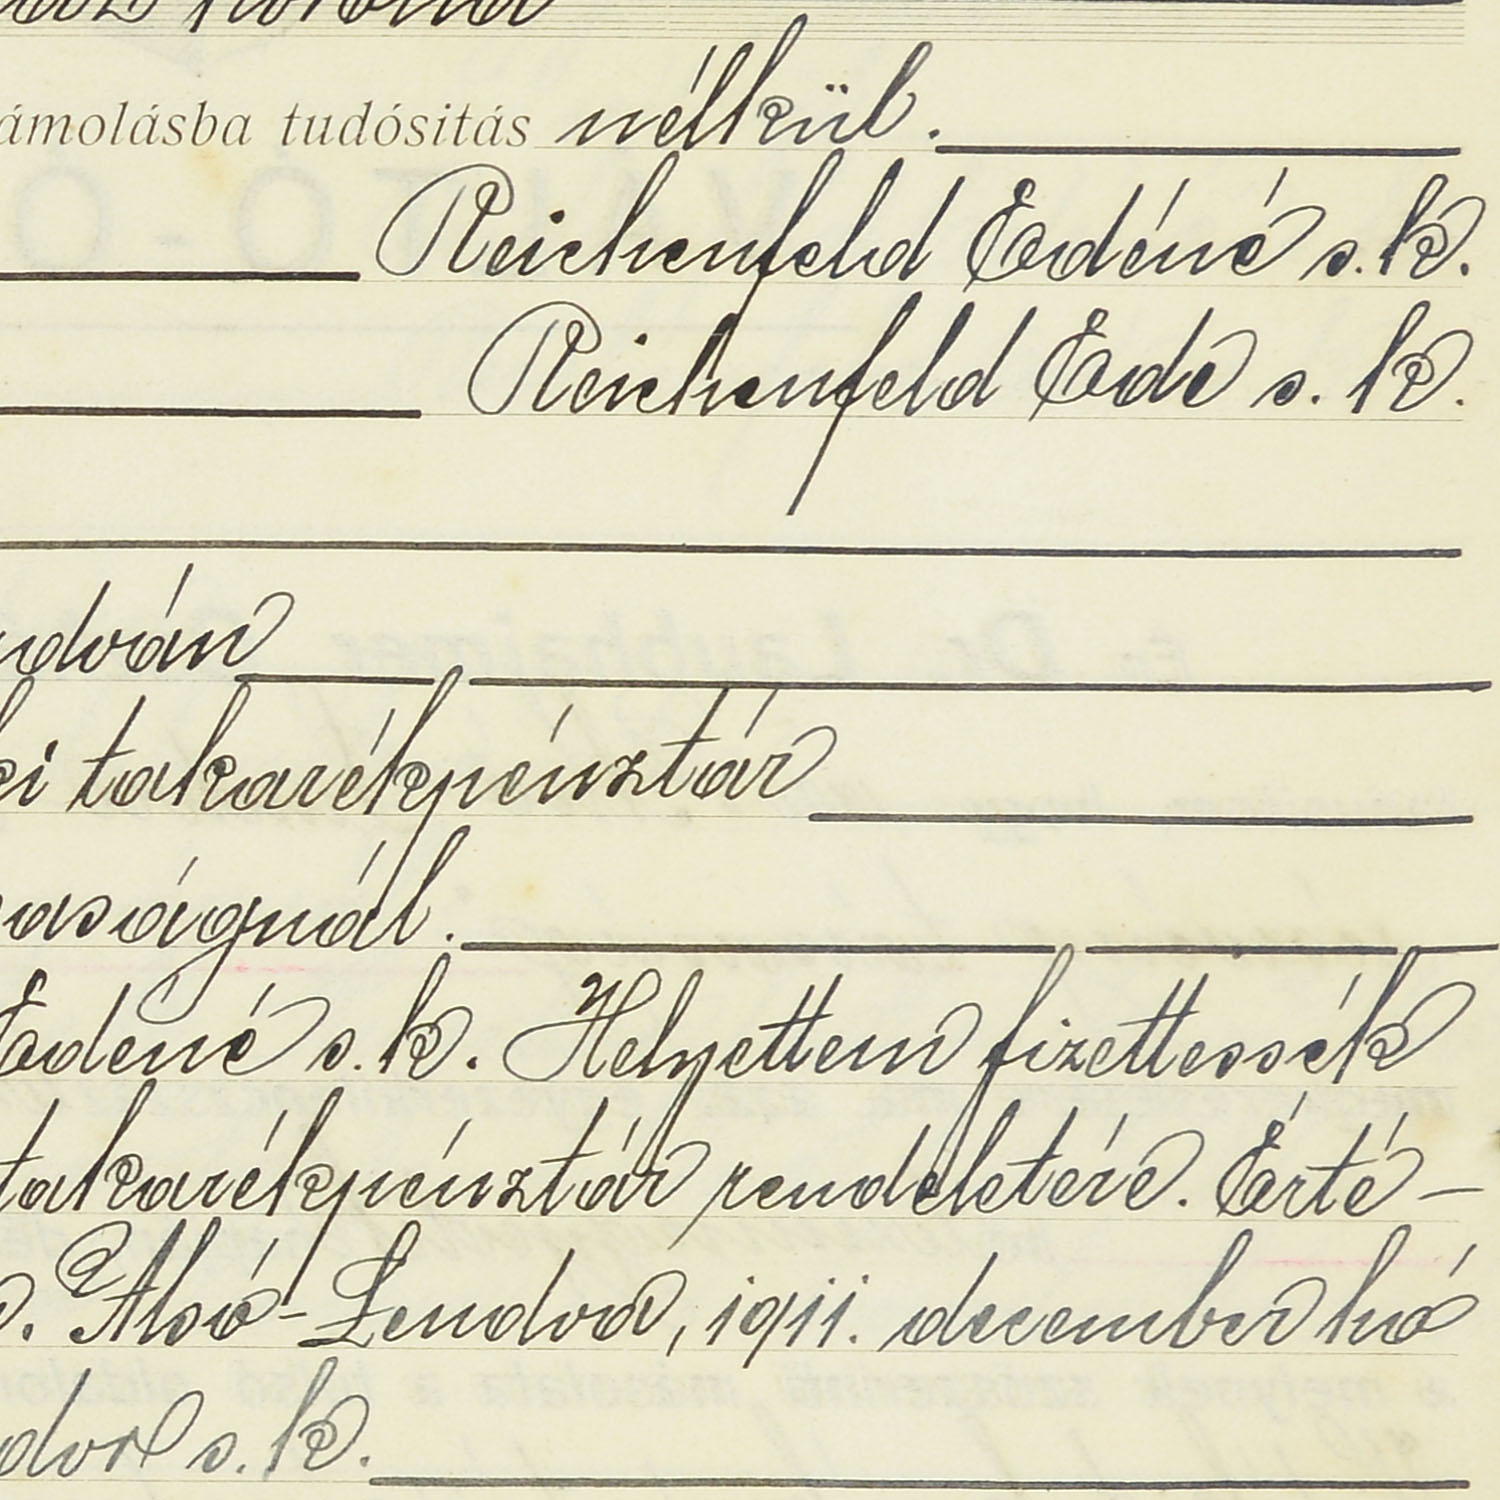 korona
ámolásba tudósitás nélkül.
Reichenfeld Edéné s. k.
Reichenfeld Ede s. k.
ndván
ki takarékpénztár
asságnál.
Edéné s. k. Helyettem fizettessék
takarékpénztár rendeletére. Érté-
Alsó-Lendva, 1911. december hó
dor s. k.